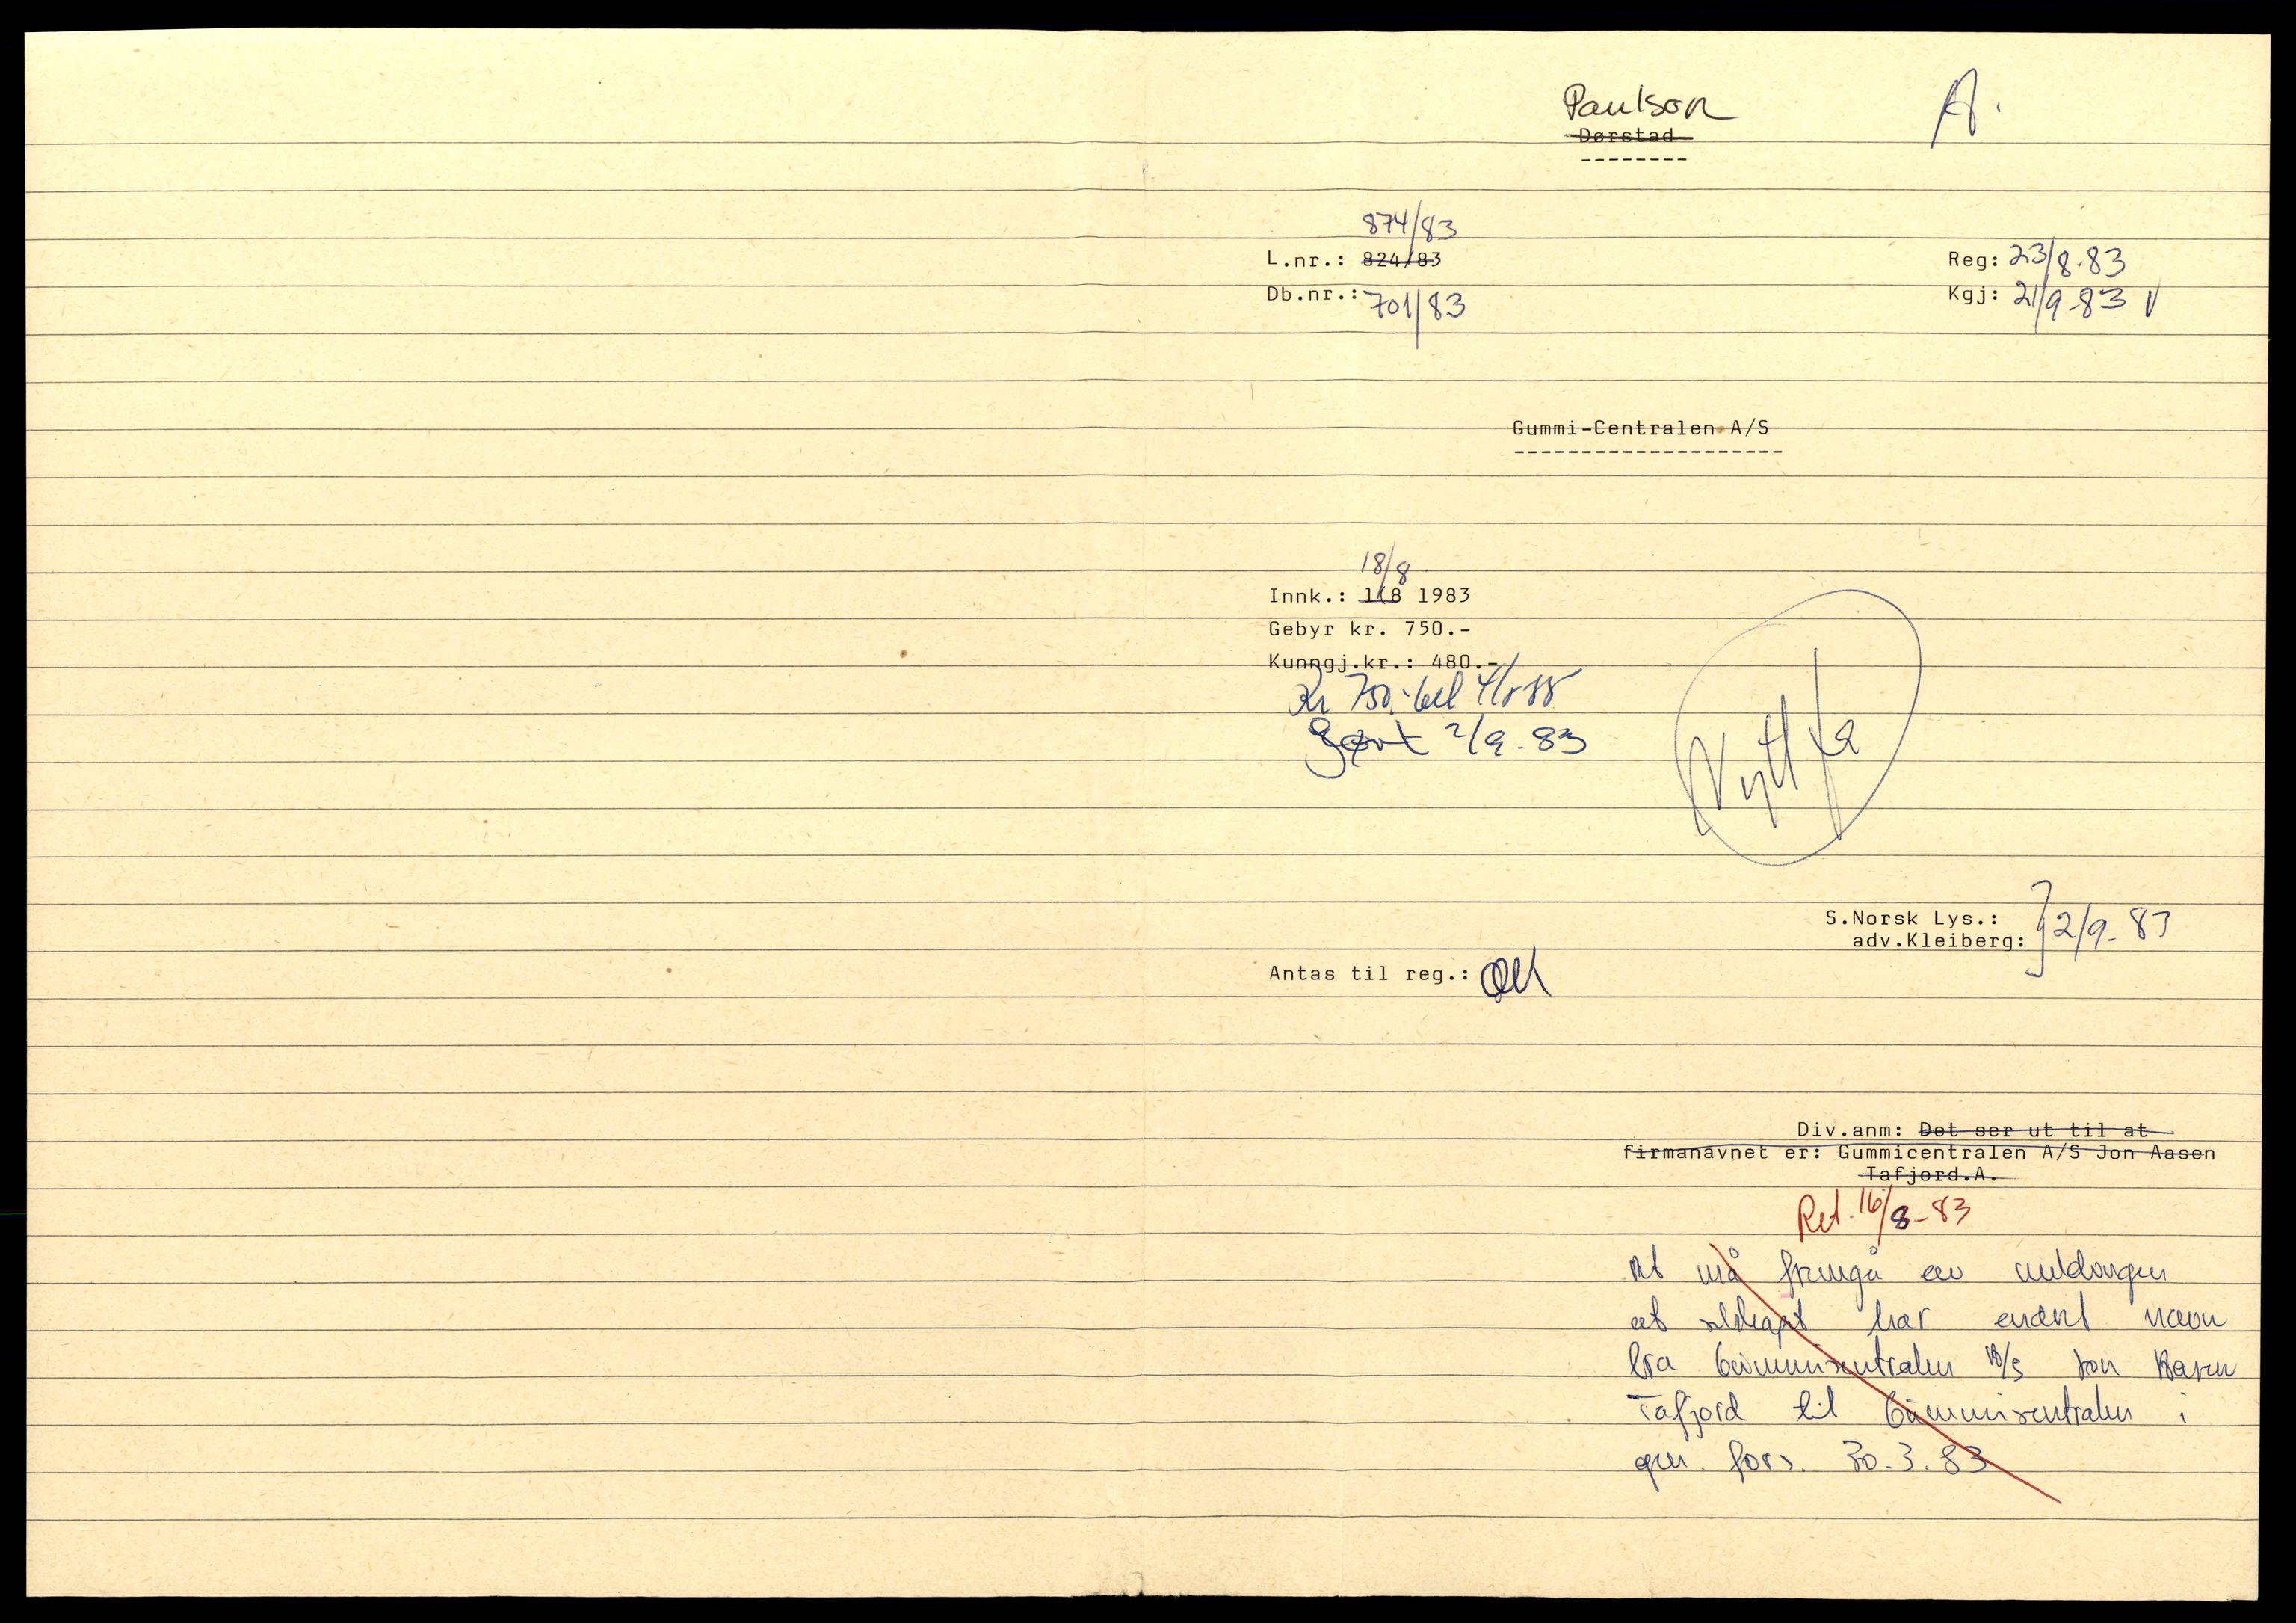 Paulson
A.
Dørstad
874/83
L.nr.: 824/83
Reg: 23/8.83
Db.nr.: 701/83
Kgj: 21/9-83 V
Gummi-Centralen A/S
18/8
Innk.: 1/8 1983
Gebyr kr. 750.-
Kunngj.kr.: 480.-
Kr 750,-
Gjort 2/9.83
Nytt
S.Norsk Lys.:
adv.Kleiberg: 2/9-83
Antas til reg.: OK
Div.anm: Det ser ut til at
firmanavnet er: Gummicentralen A/S Jon Aasen
Tafjord.A.
Ret. 16/8-83
Det må fremgå av meldingen
at selskapet har endret navn
fra Gummisentralen A/S Jon Aasen
Tafjord til Gummisentralen i
gen. fors. 30.3.83